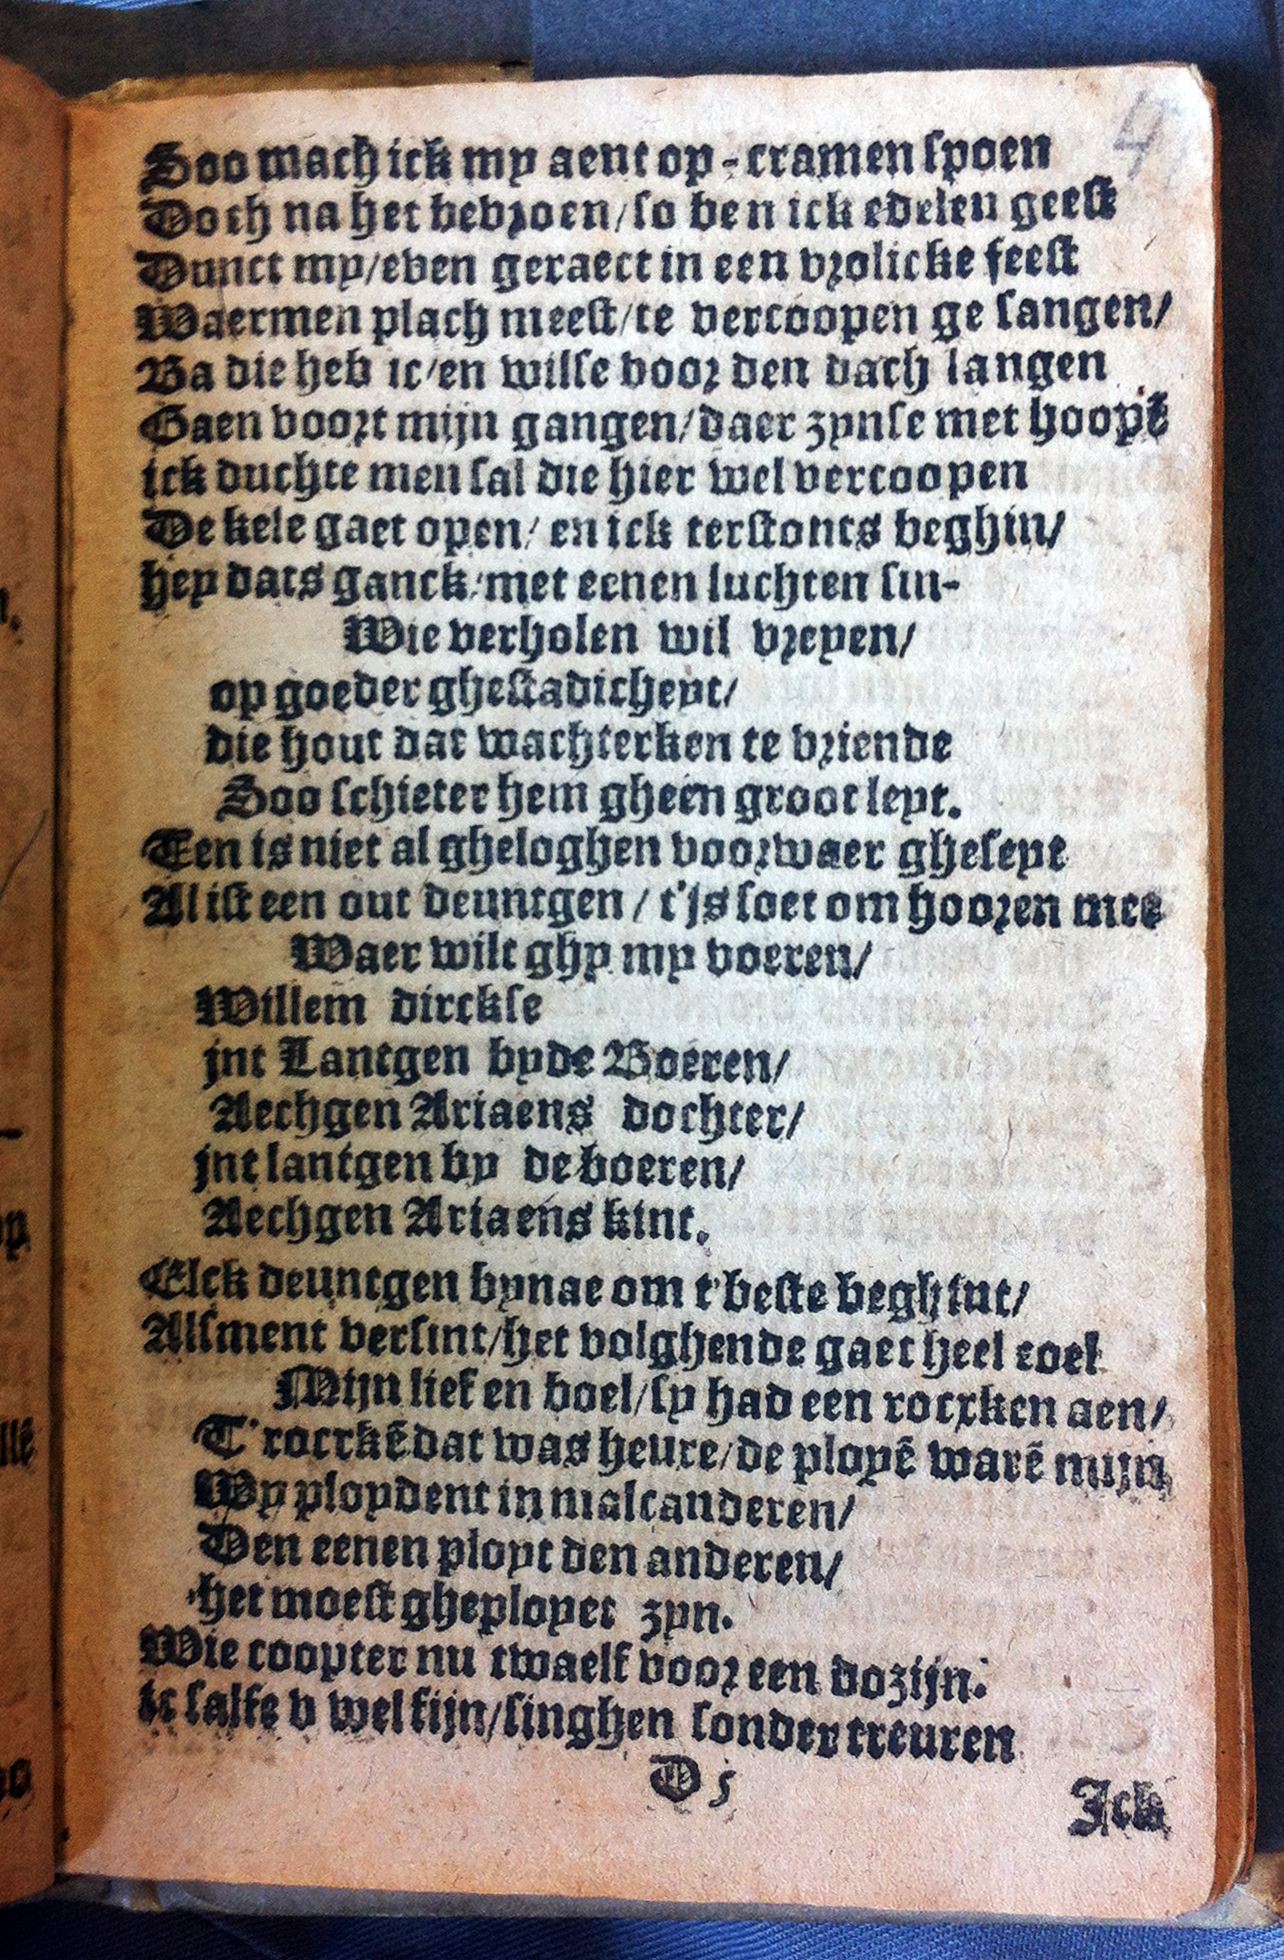 Soo mach ick my aent op-cramen spoen
Doch na het bevroen/so ben ick edelen geest
Dunct my/even geraect in een vrolicke feest
Waermen plach meest/te vercoopen ge sangen/
Ba die heb ic/en wilse voor den dach langen
Gaen voort mijn gangen/daer zynse met hoopē
ick duchte men sal die hier wel vercoopen
De kele gaet open/ en ick terstonts beghin/
hey dats ganck/met eenen luchten sin-
Wie verholen wil vryen/
op goeder ghestadicheyt/
die hout dat wachterken te vriende
Soo schieter hem gheen groot leyt.
Ten is niet al gheloghen voorwaer gheseyt
Al ist een out deuntgen / t'js soet om hooren mee
Waer wilt ghy my voeren/
Willem dirckse
jnt Lantgen byde Boeren/
Aechgen Ariaens dochter/
jnt lantgen by de boeren/
Aechgen Ariaens kint.
Elck deuntgen bynae om t'beste beghint/
Alsment versint/het volghende gaet heel coel
Mijn lief en boel/sy had een rocxken aen/
T'rocxkē dat was heure/de ployē warē mijn
Wy ploydent in malcanderen/
Den eenen ployt den anderen/
het moest gheployet zyn.
Wie coopter nu twaelf voor een dozijn.
ic salse v wel fijn/singhen sonder treuren
D 5
Ick